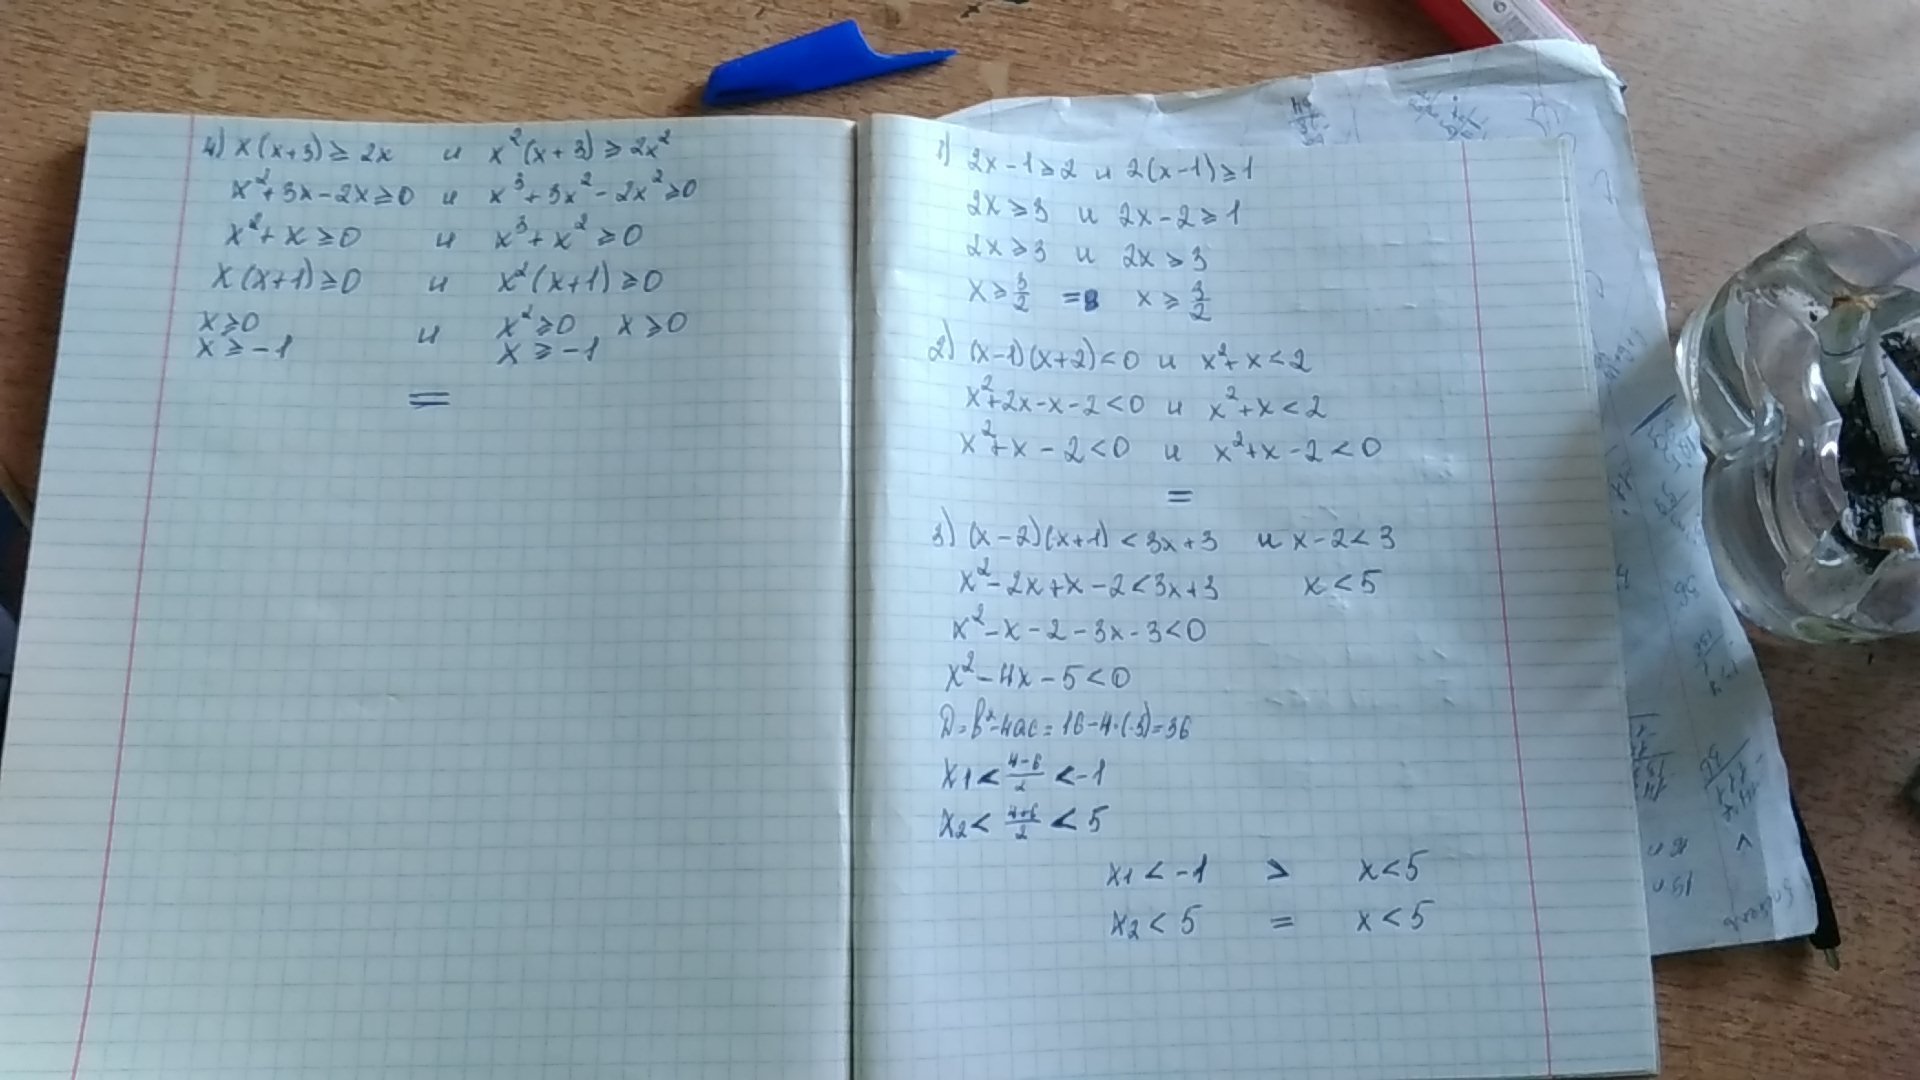 4) x(x+3)≥2x и x²(x+3)≥2x²
x²+3x-2x≥0 и x³+3x²-2x²≥0
x²+x≥0 и x³+x²≥0
x(x+1)≥0 и x²(x+1)≥0
x≥0 и x²≥0 x≥0
x≥-1 x≥-1
=
1) 2x-1≥2 и 2(x-1)≥1
2x≥3 и 2x-2≥1
2x≥3 и 2x≥3
x≥3/2 = x≥3/2
2) (x-1)(x+2)<0 и x²+x<2
x²+2x-x-2<0 и x²+x<2
x²+x-2<0 и x²+x-2<0
=
3) (x-2)(x+1)<3x+3 и x-2<3
x²-2x+x-2<3x+3 x<5
x²-x-2-3x-3<0
x²-4x-5<0
D=b²-4ac=16-4·(-5)=36
x₁<(4-6)/2<-1
x₂<(4+6)/2<5
x₁<-1 > x<5
x₂<5 = x<5